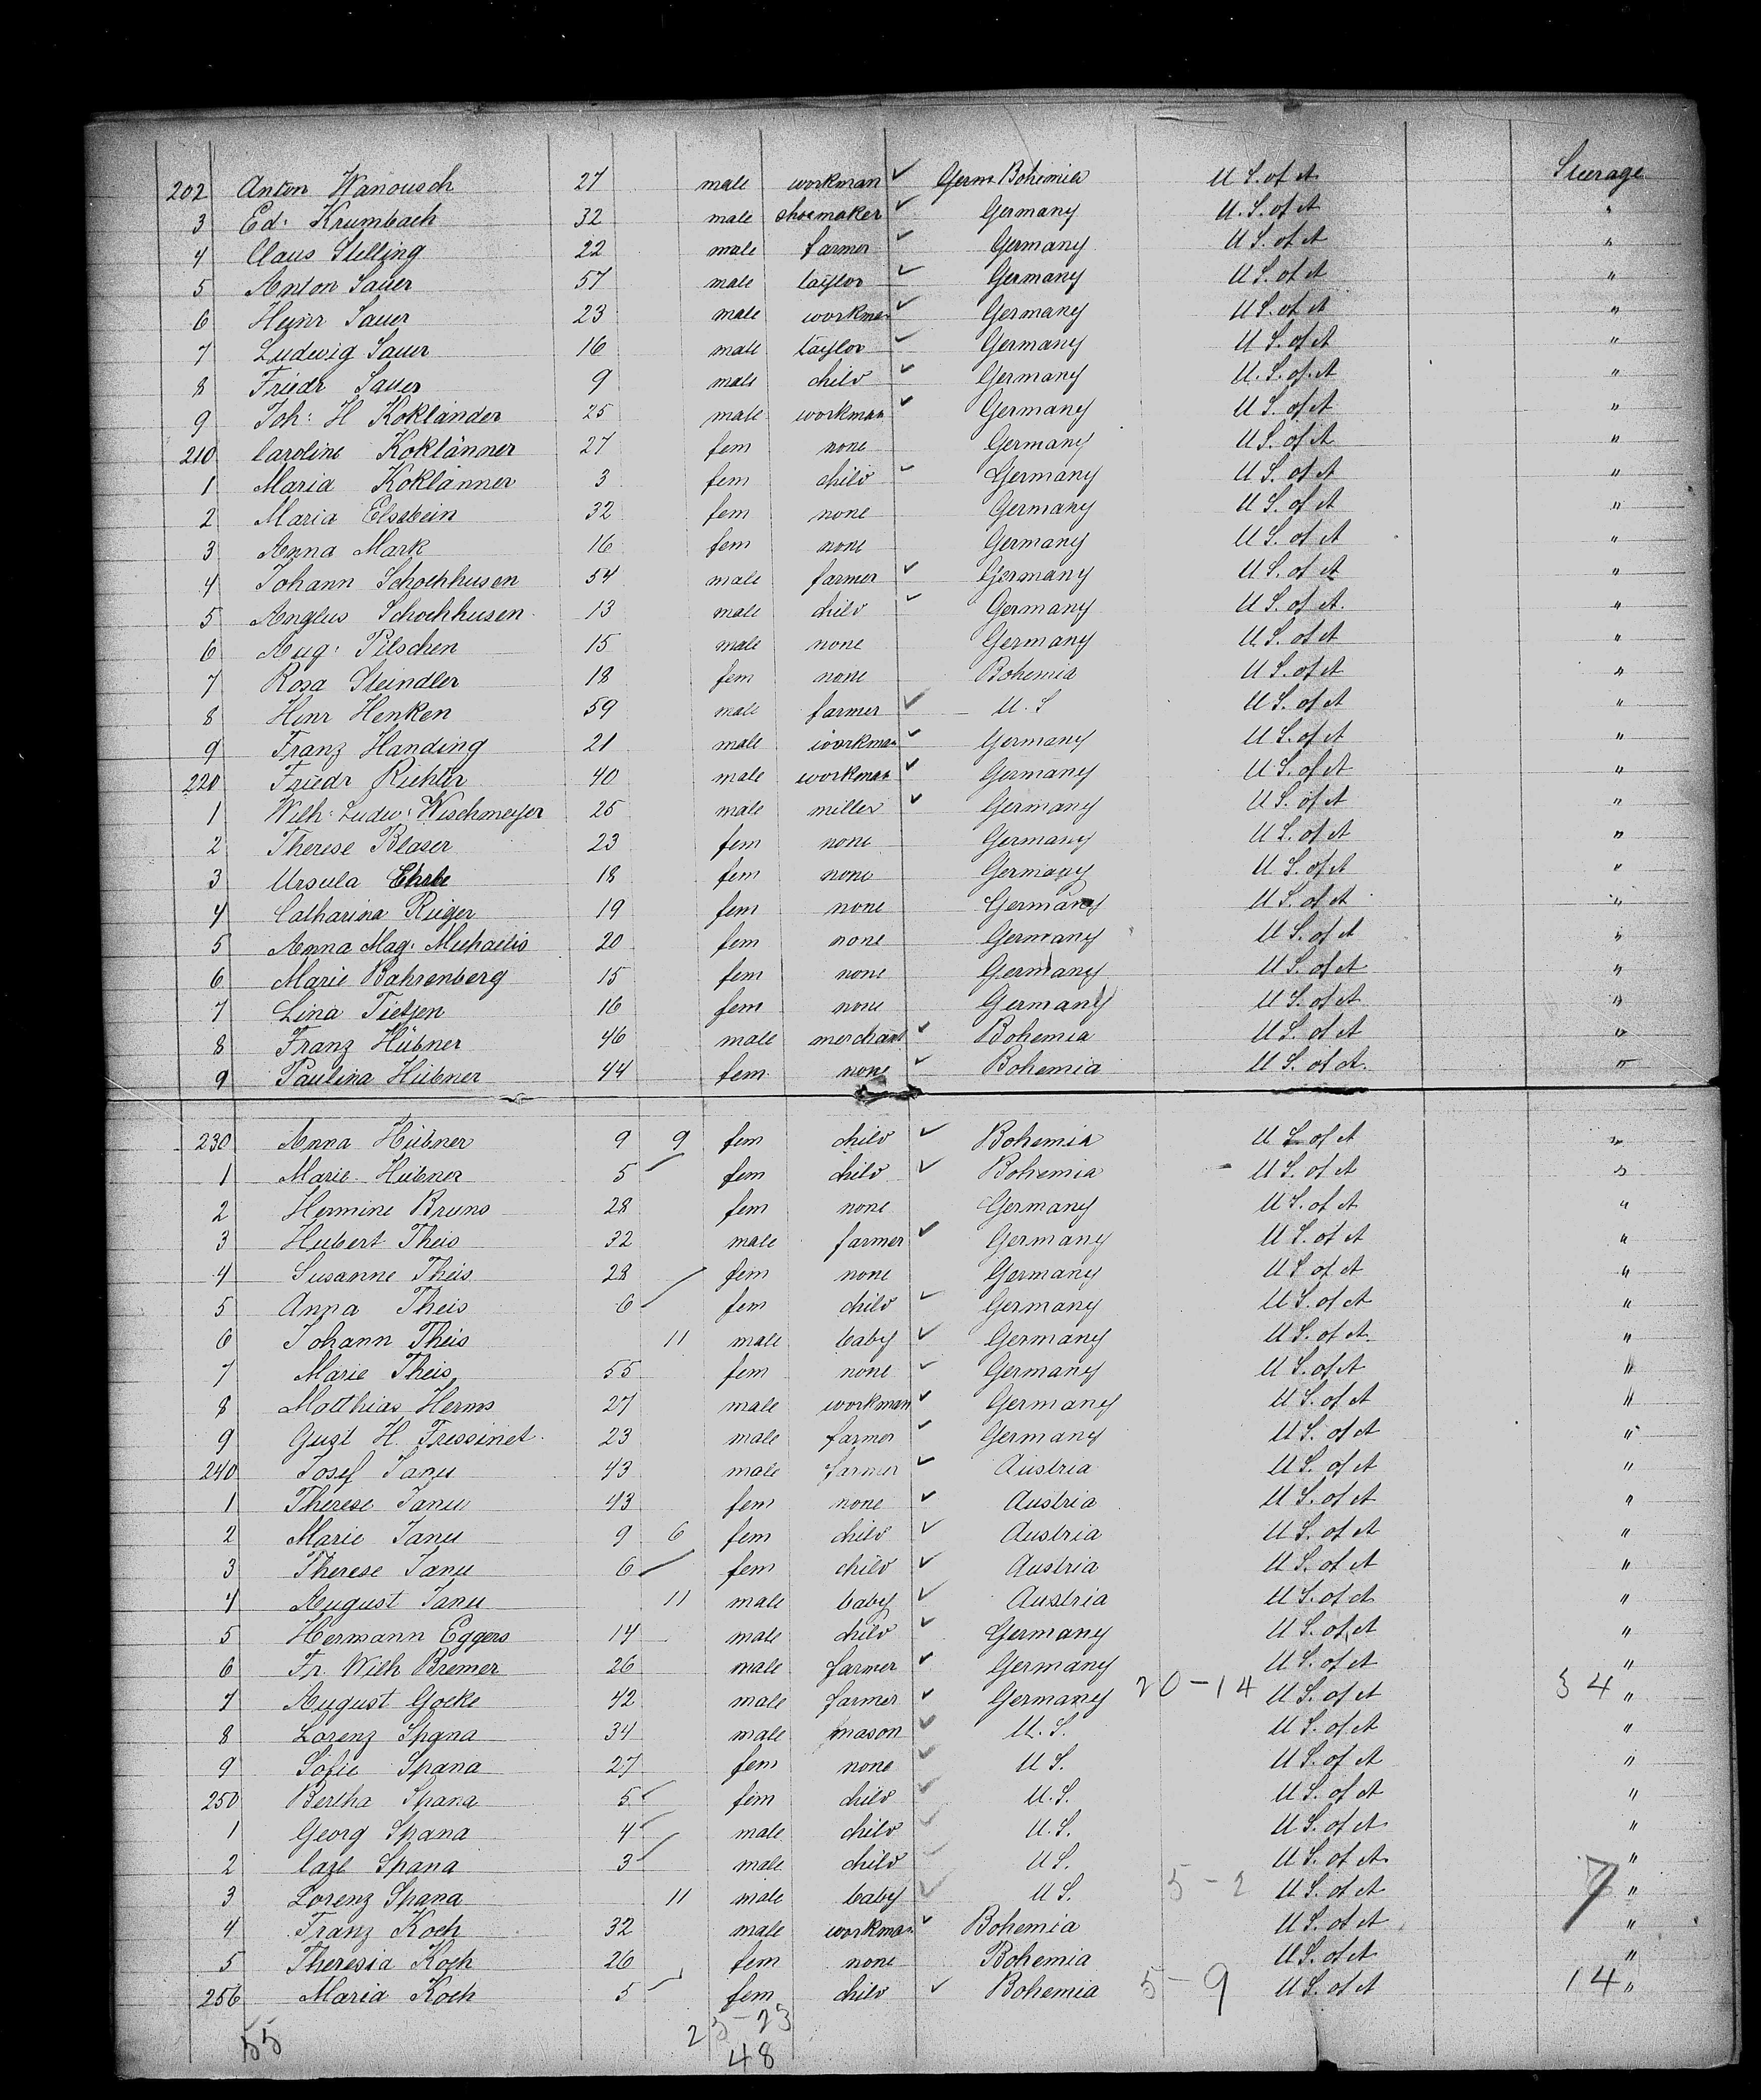 202 Anton Wanousch 27 male workman ✓ Germ Bohemia U S. of A. Steerage
3 Ed: Krumbach 32 male shoemaker ✓ Germany U. S. of A "
4 Claus Stelling 22 male farmer ✓ Germany U S. of A "
5 Anton Sauer 57 male taylor ✓ Germany U S. of A "
6 Heinr Sauer 23 male workman ✓ Germany U S. of A "
7 Ludwig Sauer 16 male taylor ✓ Germany U S. of A "
8 Friedr Sauer 9 male child ✓ Germany U. S. of A "
9 Joh: H Kokländer 25 male workman ✓ Germany U S. of A "
210 Caroline Koklänner 27 fem none Germany U S. of A "
1 Maria Koklänner 3 fem child ✓ Germany U S. of A "
2 Maria Elsebein 32 fem none Germany U S. of A "
3 Anna Mark 16 fem none Germany U S. of A "
4 Johann Schochhusen 54 male farmer ✓ Germany U S. of A "
5 Anglus Schochhusen 13 male child ✓ Germany U S. of A. "
6 Aug: Pilschen 15 male none Germany U S. of A "
7 Rosa Steindler 18 fem none Bohemia U S. of A "
8 Hinr Henken 59 male farmer ✓ U. S U S. of A "
9 Franz Handing 21 male workman ✓ Germany U S. of A "
220 Friedr Richter 40 male workman ✓ Germany U S. of A "
1 Wilh: Ludw: Wischmeyer 25 male miller ✓ Germany U S. of A "
2 Therese Blaser 23 fem none Germany U S. of A "
3 Ursula 18 fem none Germany U S. of A "
4 Catharina Rieger 19 fem none Germany U S. of A "
5 Anna Mag: Michaelis 20 fem none Germany U S. of A "
6 Marie Bahrenberg 15 fem none Germany U S. of A "
7 Lina Tietjen 16 fem none Germany U S. of A "
8 Franz Hübner 46 male merchant ✓ Bohemia U S. of A "
9 Paulina Hübner 44 fem none ✓ Bohemia U S. of A. "
230 Anna Hübner 9 9 fem child ✓ Bohemia U S of A "
1 Marie Hübner 5 fem child ✓ Bohemia U S. of A "
2 Hermine Bruns 28 fem none Germany U S. of A "
3 Hubert Theis 32 male farmer ✓ Germany U S. of A "
4 Susanne Theis 28 fem none Germany U S of A "
5 Anna Theis 6 fem child ✓ Germany U S. of A "
6 Johann Theis 11 male baby ✓ Germany U S. of A. "
7 Marie Theis 55 fem none ✓ Germany U S. of A "
8 Matthias Herms 27 male workman ✓ Germany U S. of A "
9 Gust H. Fressinet 23 male farmer ✓ Germany U S. of A "
240 Josef Janu 43 male farmer ✓ Austria U S. of A "
1 Therese Janu 43 fem none ✓ Austria U S. of A "
2 Marie Janu 9 6 fem child ✓ Austria U S. of A "
3 Therese Janu 6 fem child ✓ Austria U S. of A "
4 August Janu 11 male baby ✓ Austria U S. of A "
5 Hermann Eggers 14 male child ✓ Germany U S. of A "
6 Fr. Wilh Bremer 26 male farmer ✓ Germany U S. of A "
7 August Goeke 42 male farmer ✓ Germany 20-14 U S. of A 34 "
8 Lorenz Spana 34 male mason ✓ U. S. U S. of A "
9 Sofie Spana 27 fem none ✓ U S. U S. of A "
250 Bertha Spana 5 ✓ fem child ✓ U. S. U S. of A "
1 Georg Spana 4 ✓ male child ✓ U. S. U S. of A "
2 Carl Spana 3 ✓ male child ✓ U S. U S. of A. "
3 Lorenz Spana 11 male baby ✓ U S. 5-2 U S. of A 7 "
4 Franz Koch 32 male workman ✓ Bohemia U S. of A "
5 Theresia Koch 26 fem none Bohemia U S. of A "
256 Maria Koch 5 fem child ✓ Bohemia 5-9 U S. of A 14 "
55 25-23
48